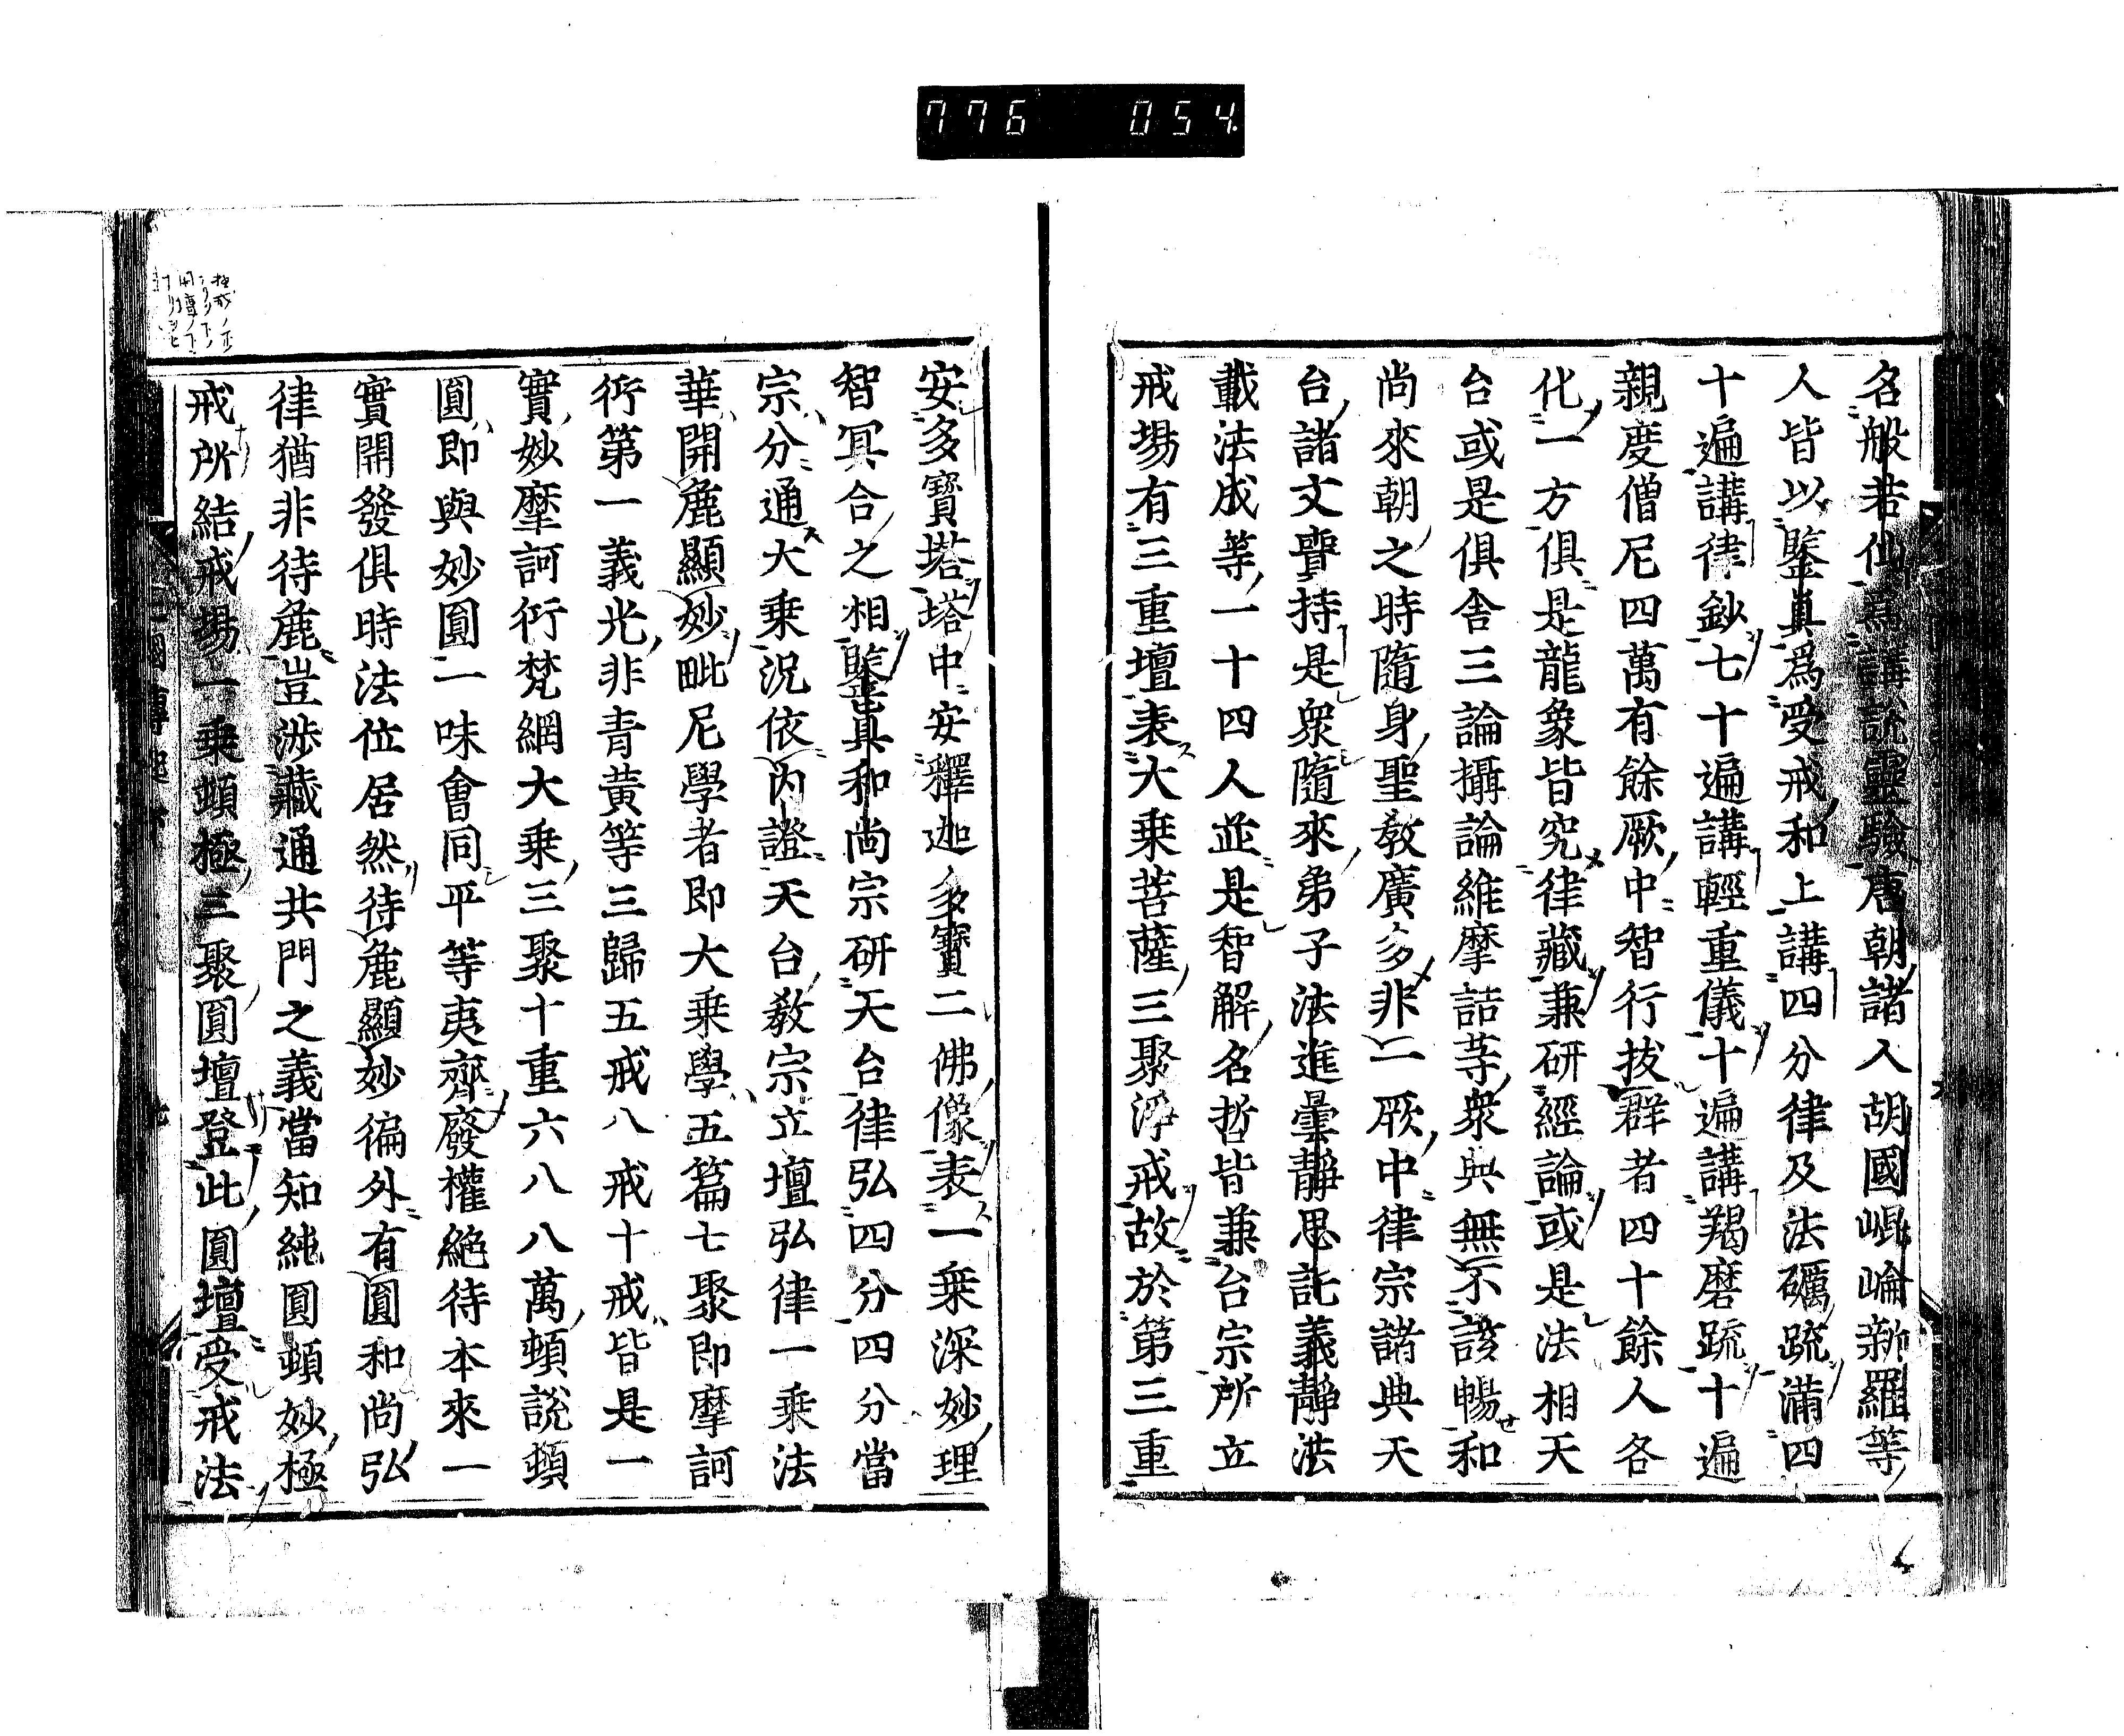 776 054
名般若仙爲講說靈驗唐朝諸人胡國崐崘新羅等
人皆以鑒眞爲受戒和上講四分律及法礪䟽滿四
十遍講律鈔七十遍講輕重儀十遍講羯磨䟽十遍
親度僧尼四萬有餘厥中智行拔群者四十餘人各
化一方俱是龍象皆究律藏兼研經論或是法相天
台或是俱舍三論攝論維摩詰等衆典無不該暢和
尚來朝之時隨身聖教廣多非一厥中律宗諸典天
台諸文賷持是衆隨來弟子法進曇靜思託義靜法
載法成等一十四人並是智解名哲皆兼台宗所立
戒場有三重壇表大乘菩薩三聚淨戒故於第三重
安多寶塔塔中安釋迦多寶二佛像表一乘深妙理
智冥合之相鑒眞和尚宗研天台律弘四分四分當
宗分通大乘況依內證天台教宗立壇弘律一乘法
華開麁顯妙毗尼學者即大乘學五篇七聚即摩訶
衍第一義光非青黄等三歸五戒八戒十戒皆是一
實妙摩訶衍梵網大乘三聚十重六八八萬頓說頓
圓即與妙圓一味會同平等夷齊廢權絶待本來一
實開發俱時法位居然待麁顯妙偏外有圓和尚弘
律猶非待麁豈涉藏通共門之義當知純圓頓妙極
戒所結戒場一乘頓極三聚圓壇登此圓壇受戒法